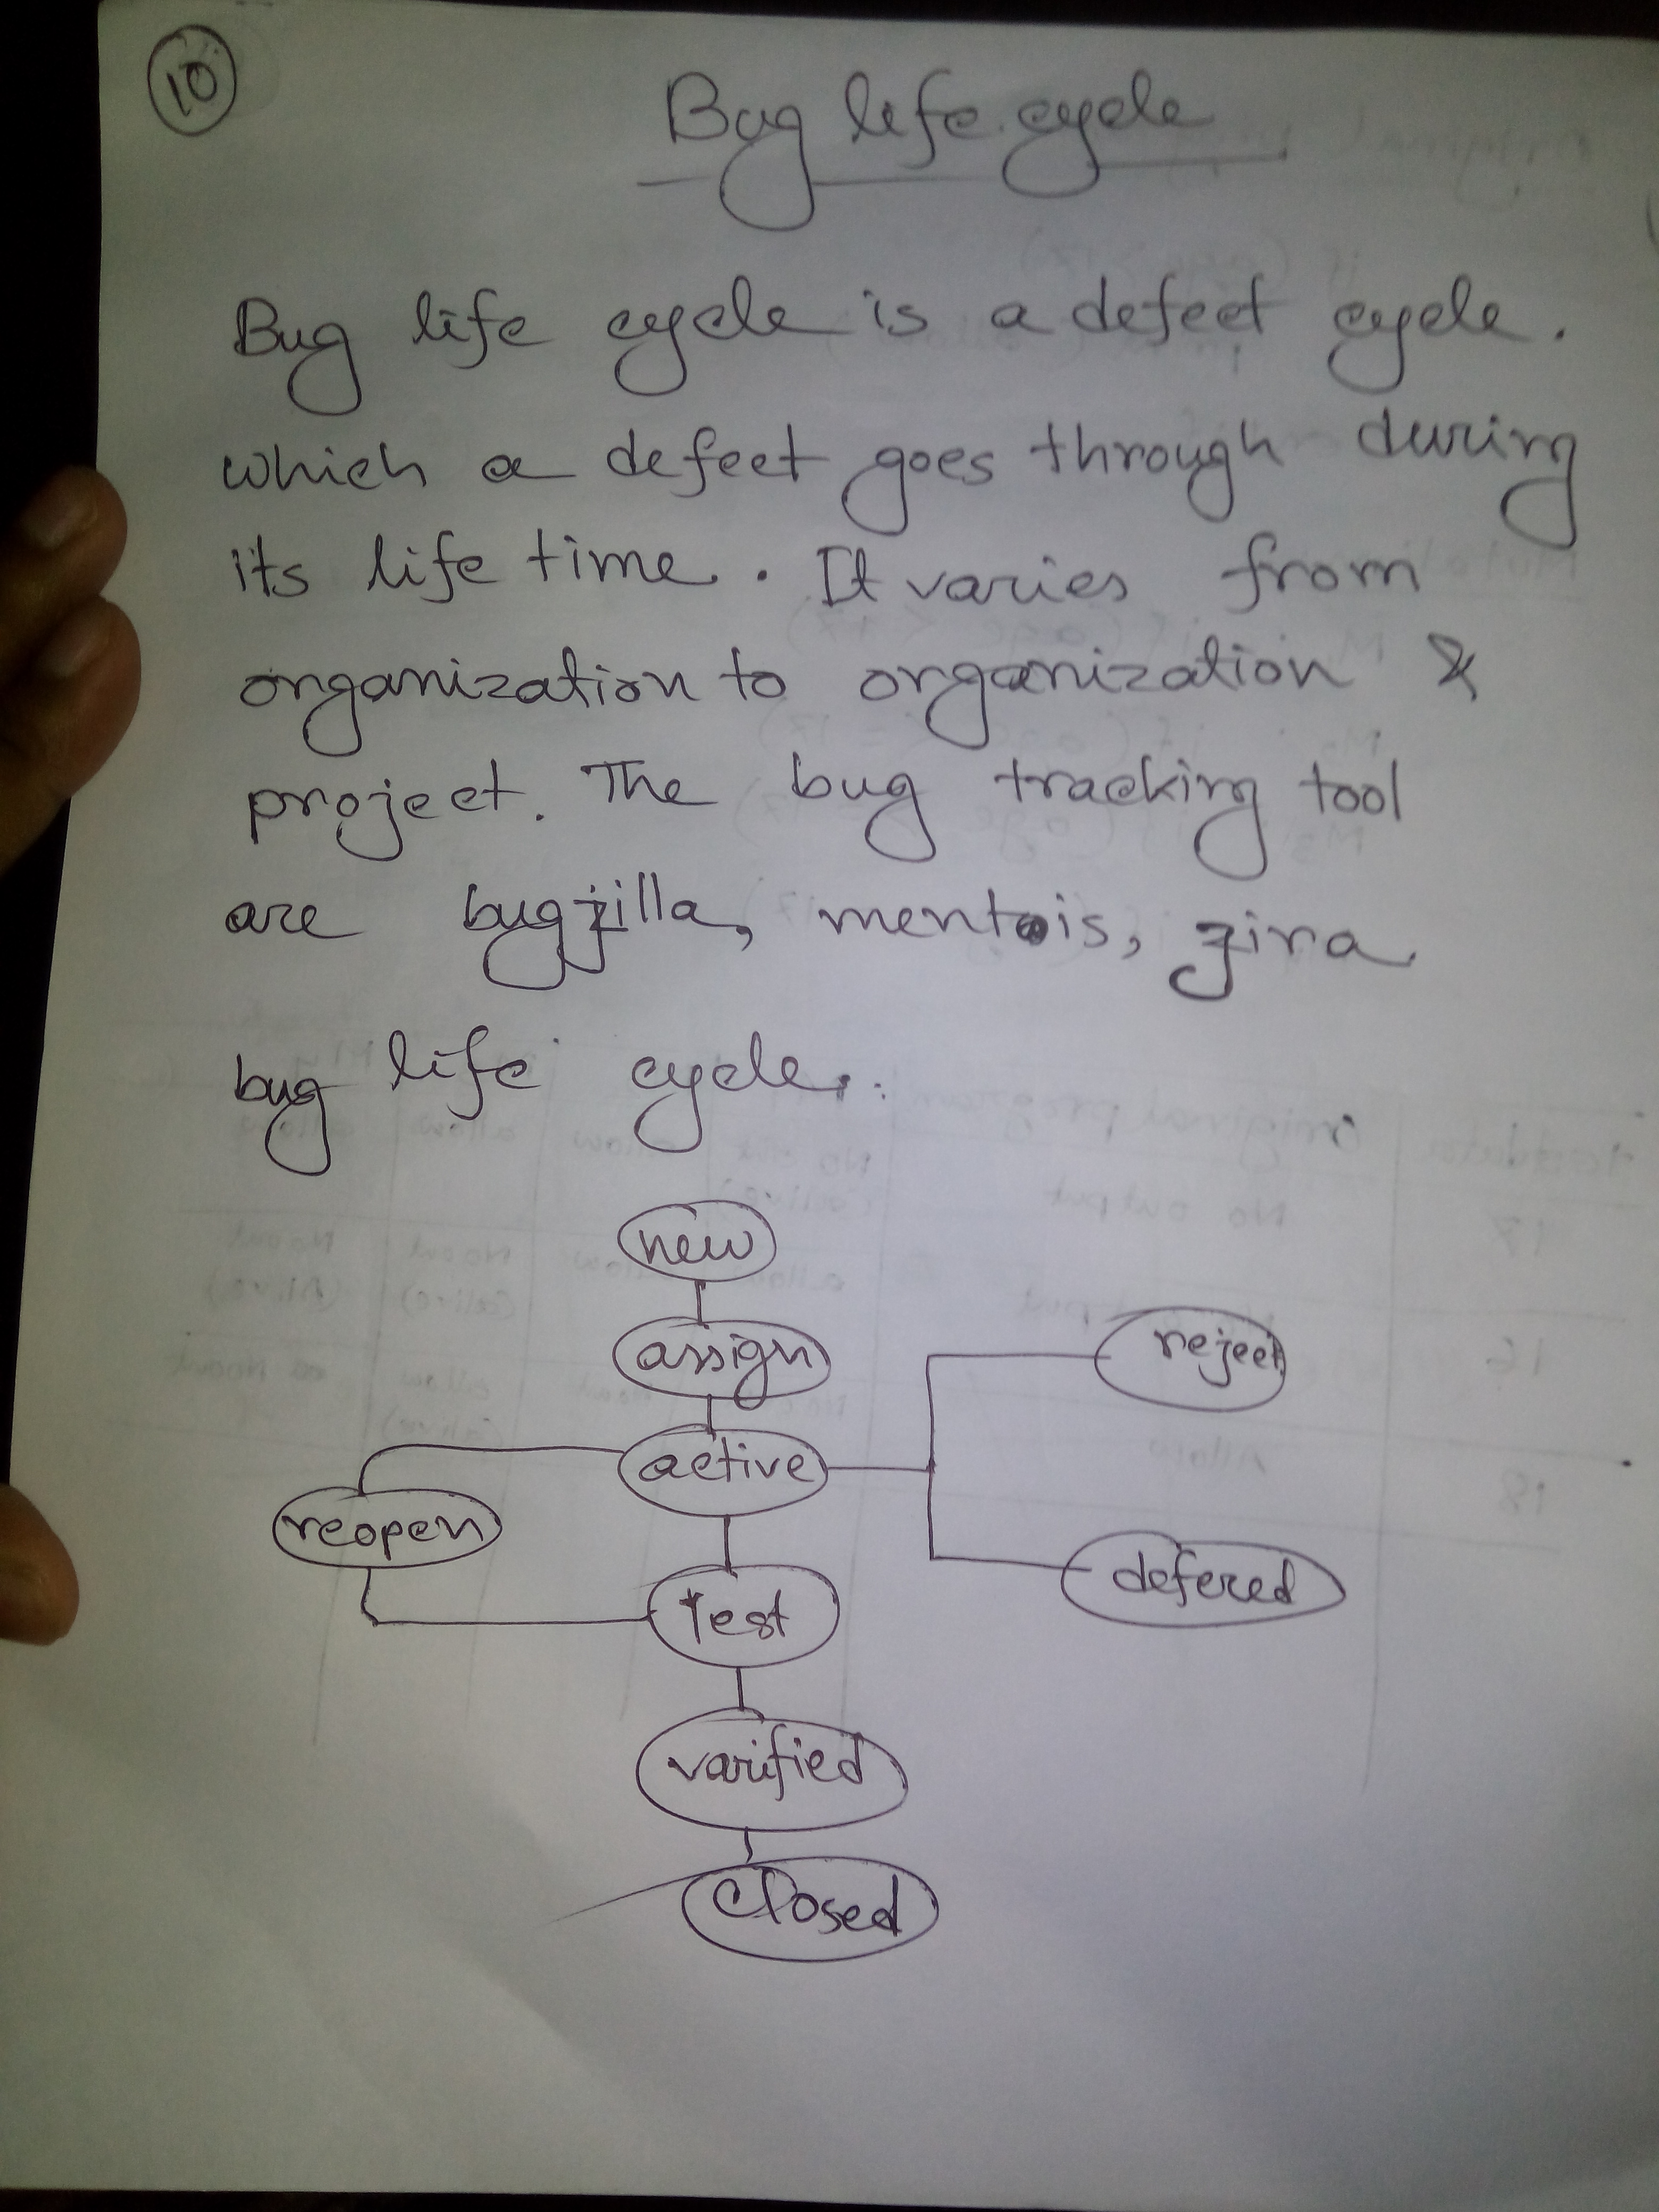 10
Bug life cycle
Bug life cycle is a defect cycle.
which a defect goes through during
its life time. It varies from
organization to organization &
project. The bug tracking tool
are bugzilla, mentois, jira
bug life cycle:
new
assign
reject
active
reopen
defered
Test
varified
closed